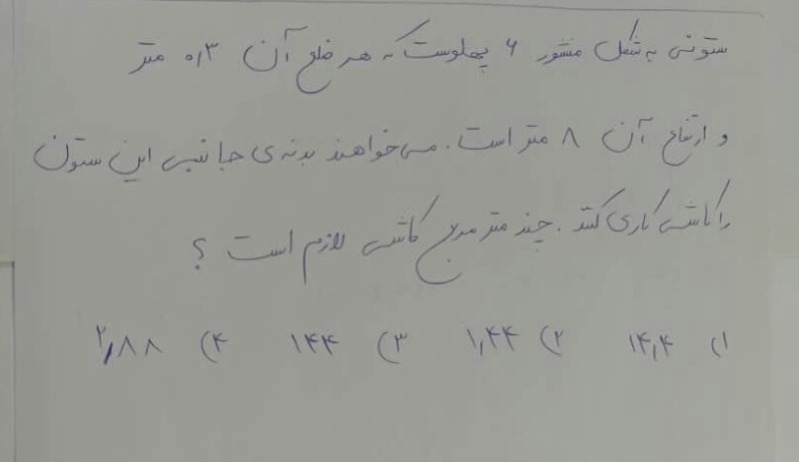 ستونی به شکل منشور ۶ پهلوست که هر ضلع آن ۰٫۳ متر
و ارتفاع آن ۸ متر است. می‌خواهند بدنه‌ی جانبی این ستون
را کاشی کاری کنند. چند متر مربع کاشی لازم است ؟
۱) ۱۴٫۴ ۲) ۱٫۴۴ ۳) ۱۴۴ ۴) ۲٫۸۸